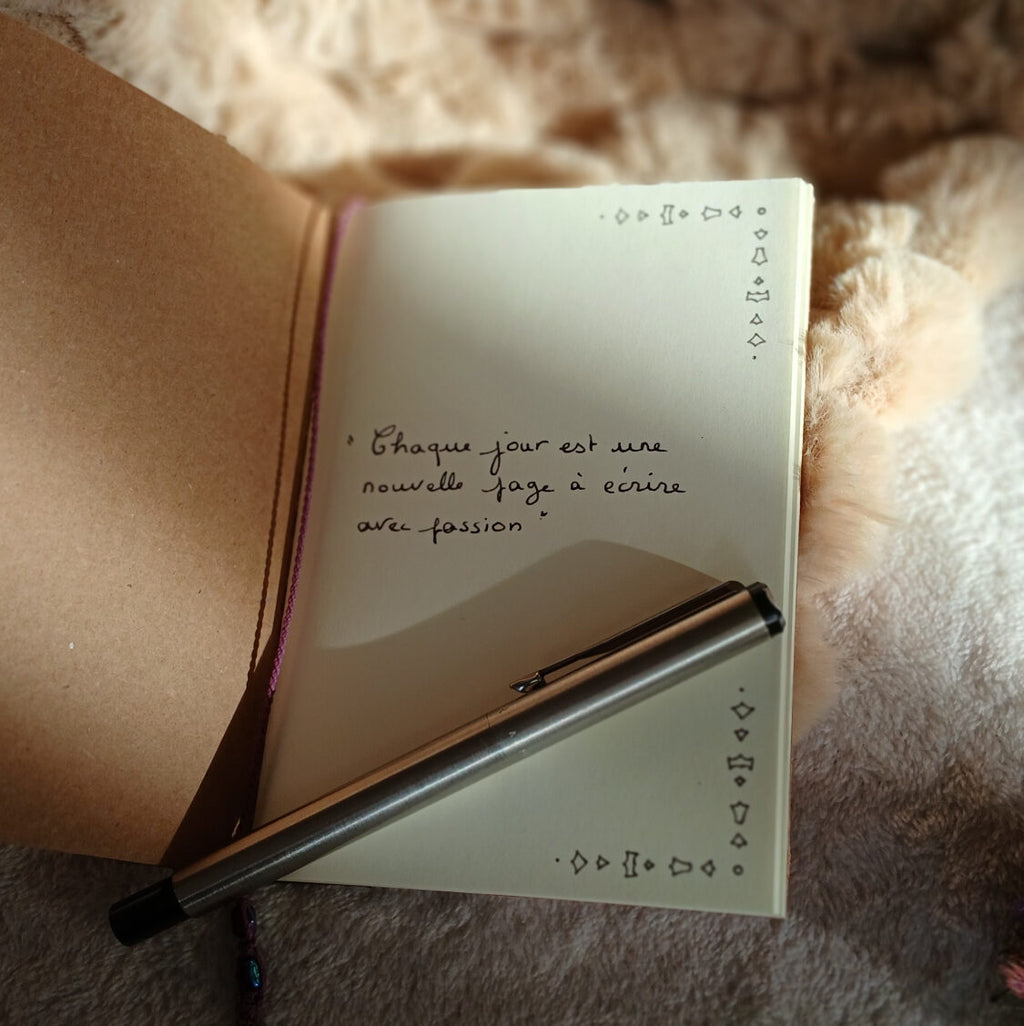 " Chaque jour est une
nouvelle page à écrire
avec passion "